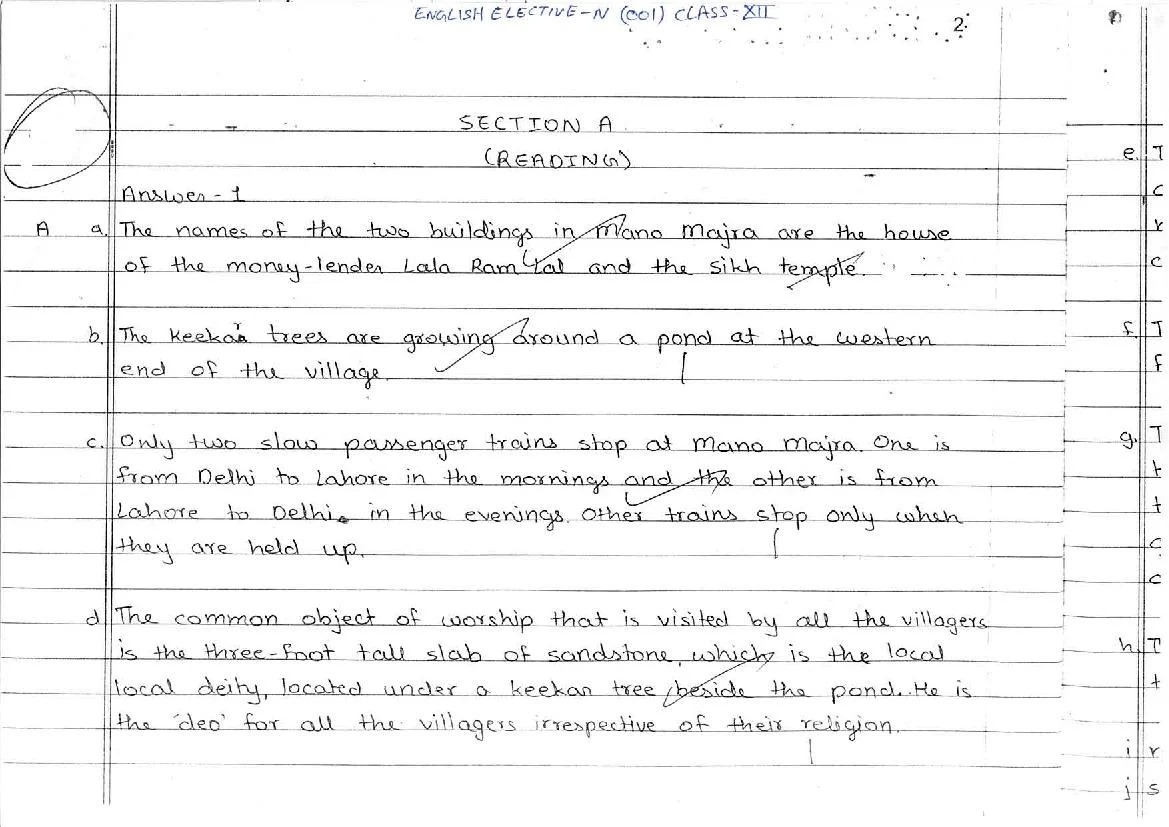 ENGLISH ELECTIVE-N (001) CLASS-XII
2
SECTION A
(READING)
Answer - 1
A a. The names of the two buildings in Mano Majra are the house
of the money-lender Lala Ram Lal and the Sikh temple.
b. The keekar trees are growing around a pond at the western
end of the village.
c. Only two slow passenger trains stop at Mano Majra. One is
from Delhi to Lahore in the mornings and the other is from
Lahore to Delhi in the evenings. Other trains stop only when
they are held up.
d The common object of worship that is visited by all the villagers
is the three-foot tall slab of sandstone, which is the local
local deity, located under a keekar tree beside the pond. He is
the 'deo' for all the villagers irrespective of their religion.
e. T
c
r
c
f. T
f
g. T
t
t
c
c
h. T
t
i r
j s